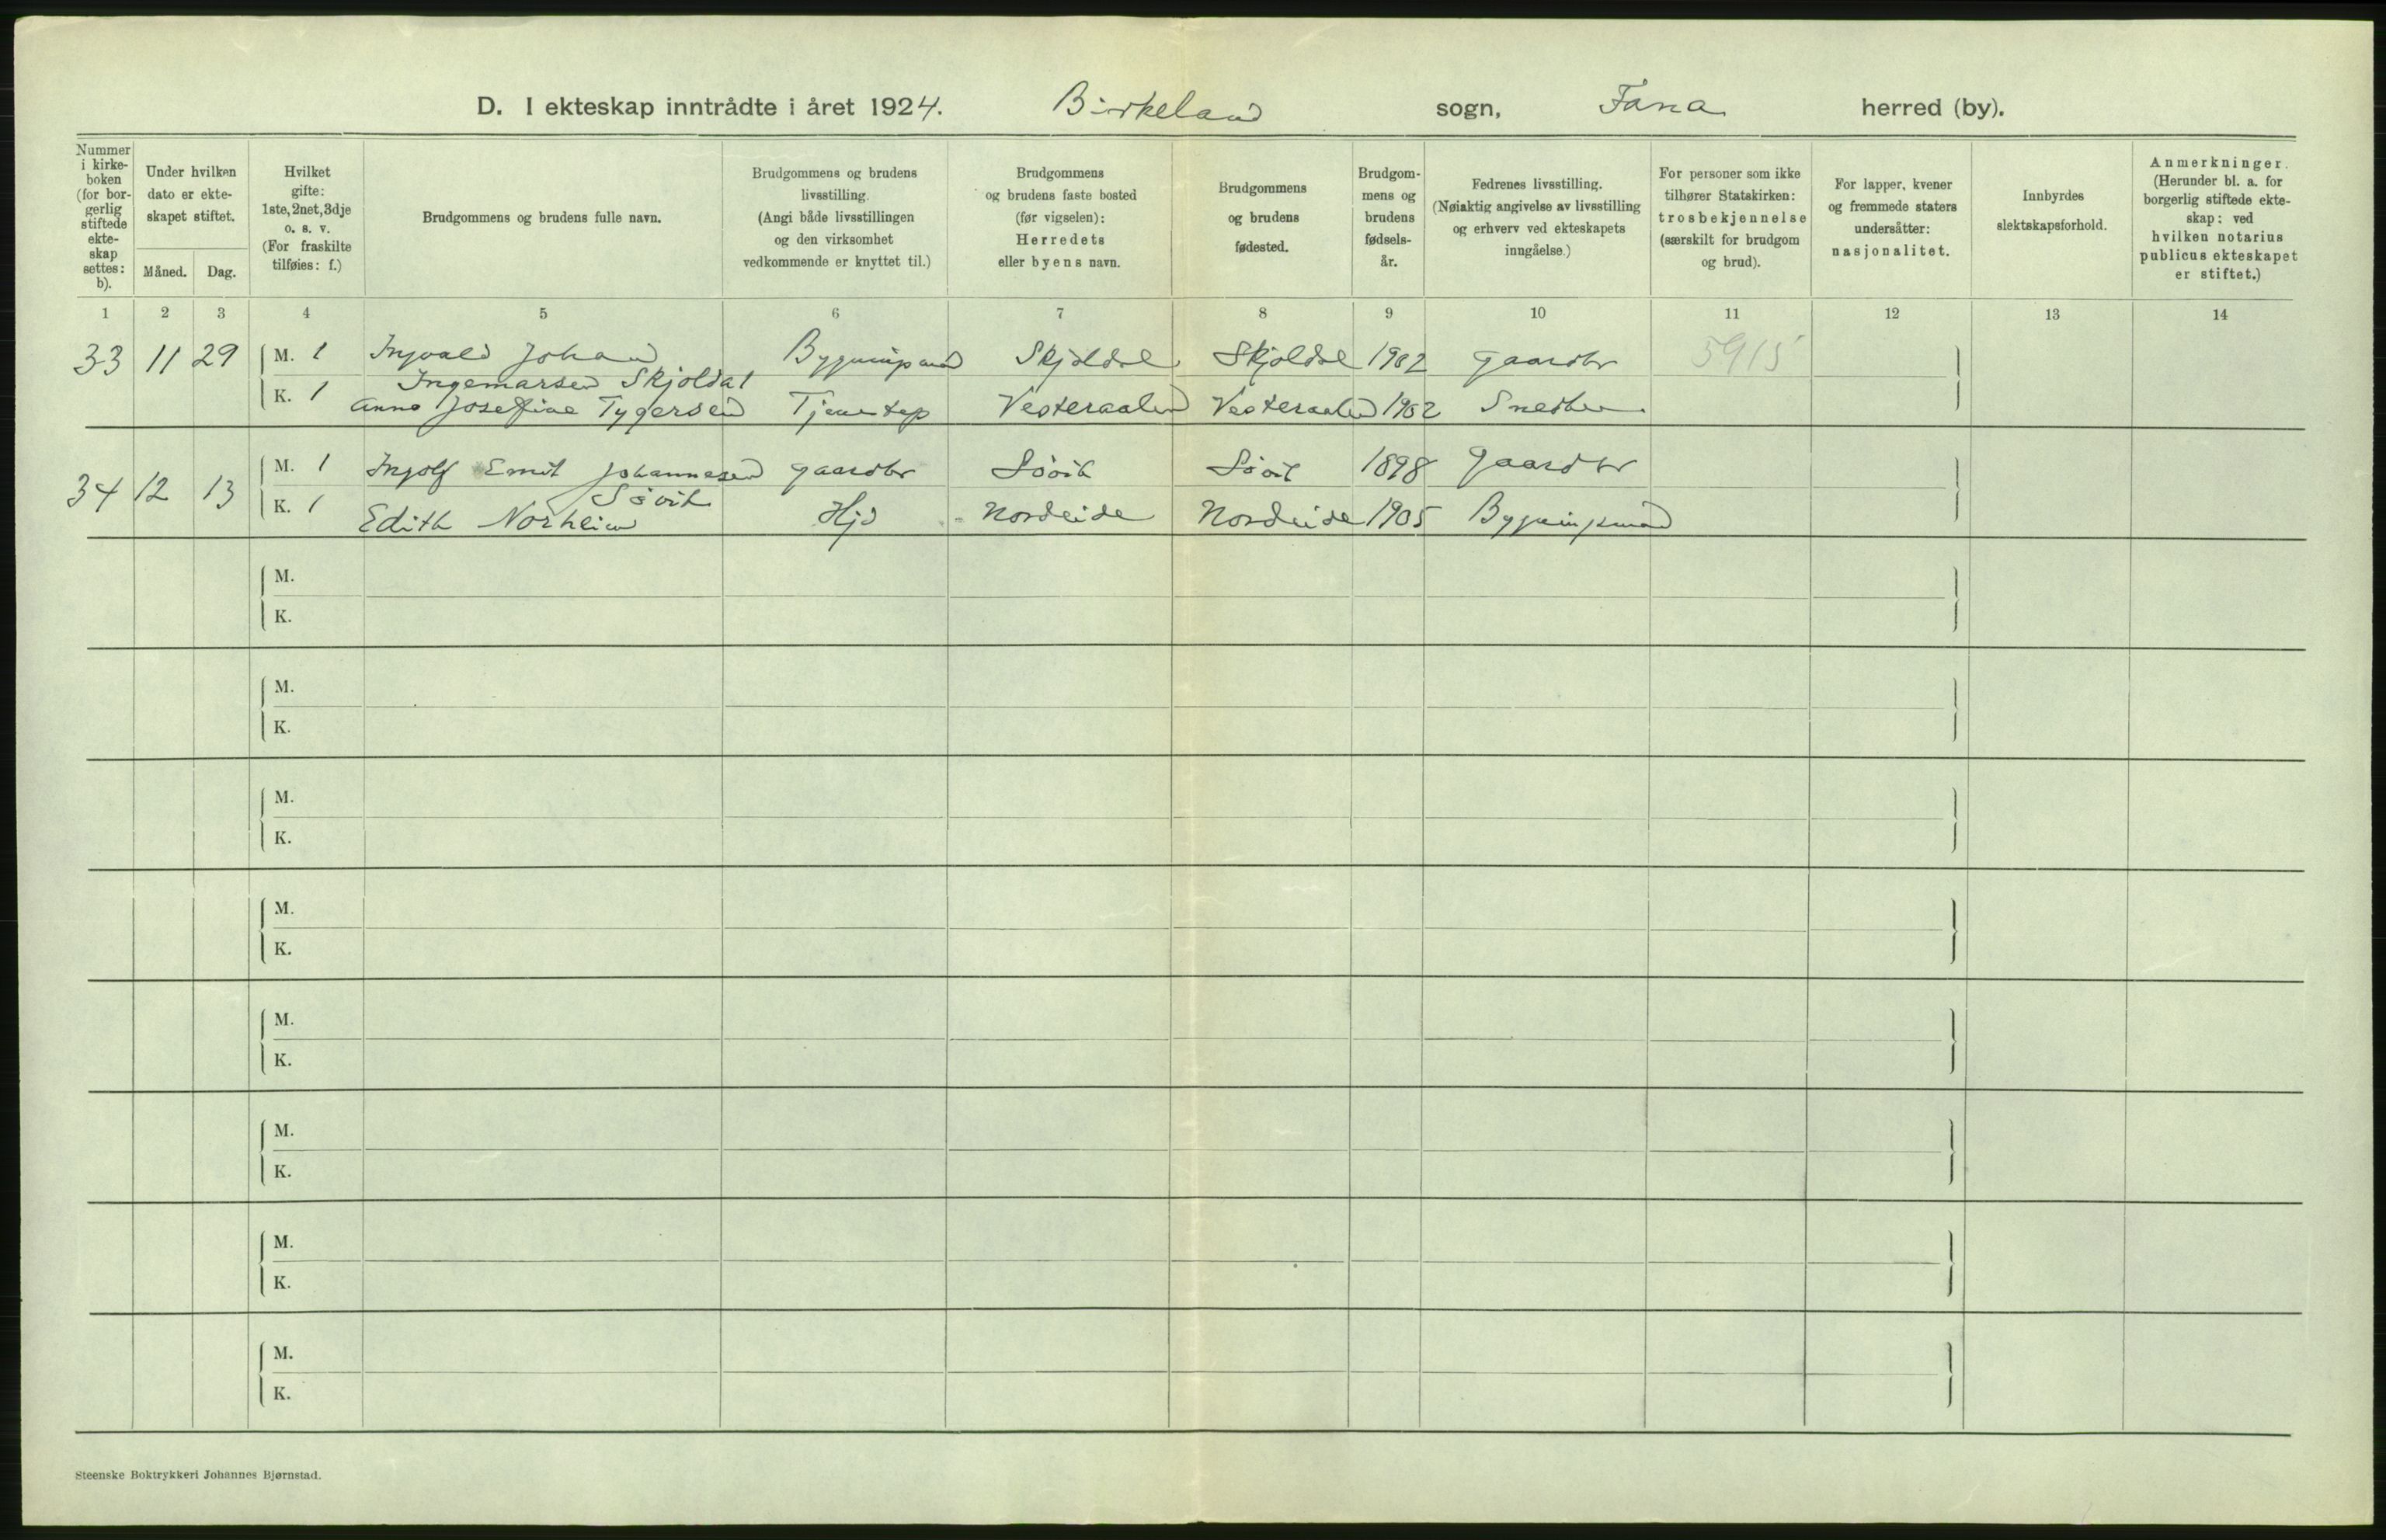 D. I ekteskap inntrådte i året 1924. Birkeland sogn, Fana herred (by).
Nummer i kirke-boken (for bor-gerlig stiftede ekte-skap settes: b).
Under hvilken dato er ekte-skapet stiftet.
Måned.
Dag.
Hvilket gifte: 1ste, 2net, 3dje o. s. v. (For fraskilte tilføies: f.)
Brudgommens og brudens fulle navn.
Brudgommens og brudens livsstilling. (Angi både livsstillingen og den virksomhet vedkommende er knyttet til.)
Brudgommens og brudens faste bosted (før vigselen): Herredets eller byens navn.
Brudgommens og brudens fødested.
Brudgom-mens og brudens fødsels-år.
Fedrenes livsstilling. (Nøiaktig angivelse av livsstilling og erhverv ved ekteskapets inngåelse.)
For personer som ikke tilhører Statskirken: trosbekjennelse (særskilt for brudgom og brud).
For lapper, kvener og fremmede staters undersåtter: nasjonalitet.
Innbyrdes slektskapsforhold.
Anmerkninger. (Herunder bl. a. for borgerlig stiftede ekte-skap: ved hvilken notarius publicus ekteskapet er stiftet.)
1 2 3 4 5 6 7 8 9 10 11 12 13 14
33 11 29 M. 1 Ingvald Johan Skjoldal Skjoldal 1902 Gaardbr 5915
Ingemarsen Skjoldal
K. 1 Anna Josefine Tygersen Vesteraalen Vesteraalen 1902
34 12 13 M. 1 Ingolf Emil Johannesen Gaardbr Søvik Søvik 1898 Gaardbr
Søvik
K. 1 Edith Norheim Hjd Nordeide Nordeide 1905
M.
K.
M.
K.
M.
K.
M.
K.
M.
K.
M.
K.
M.
K.
M.
K.
Steenske Boktrykkeri Johannes Bjørnstad.